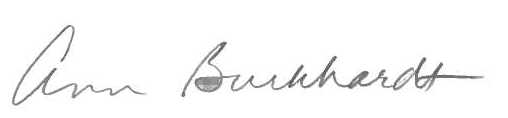 Ann Burkhardt